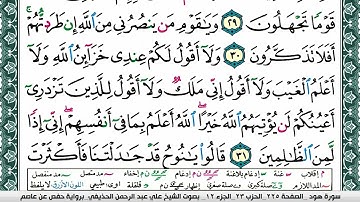 قَوْمًا تَجْهَلُونَ ٢٩ وَيَٰقَوْمِ مَن يَنصُرُنِي مِنَ ٱللَّهِ إِن طَرَدتُّهُمْ ۚ
أَفَلَا تَذَكَّرُونَ ٣٠ وَلَآ أَقُولُ لَكُمْ عِندِي خَزَآئِنُ ٱللَّهِ وَلَآ
أَعْلَمُ ٱلْغَيْبَ وَلَآ أَقُولُ إِنِّي مَلَكٌ وَلَآ أَقُولُ لِلَّذِينَ تَزْدَرِيٓ
أَعْيُنُكُمْ لَن يُؤْتِيَهُمُ ٱللَّهُ خَيْرًا ۖ ٱللَّهُ أَعْلَمُ بِمَا فِيٓ أَنفُسِهِمْ ۖ إِنِّيٓ إِذًا
لَّمِنَ ٱلظَّٰلِمِينَ ٣١ قَالُوا۟ يَٰنُوحُ قَدْ جَٰدَلْتَنَا فَأَكْثَرْتَ
سورة هود - الصفحة ٢٢٥ - الحزب ٢٣ - الجزء ١٢ - بصوت الشيخ علي عبد الرحمن الحذيفي - برواية حفص عن عاصم